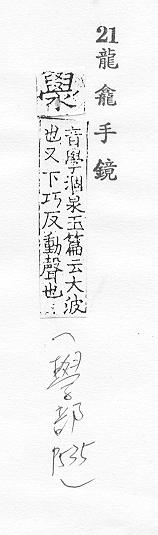 21龍龕手鏡
澩
音學涸泉玉篇云大波
也又下巧反動聲也…
（學部
P535）